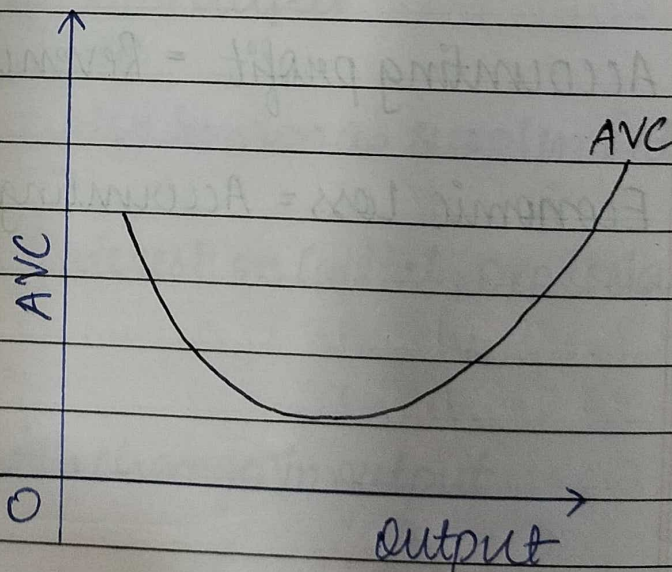 AVC
AVC
O
Output